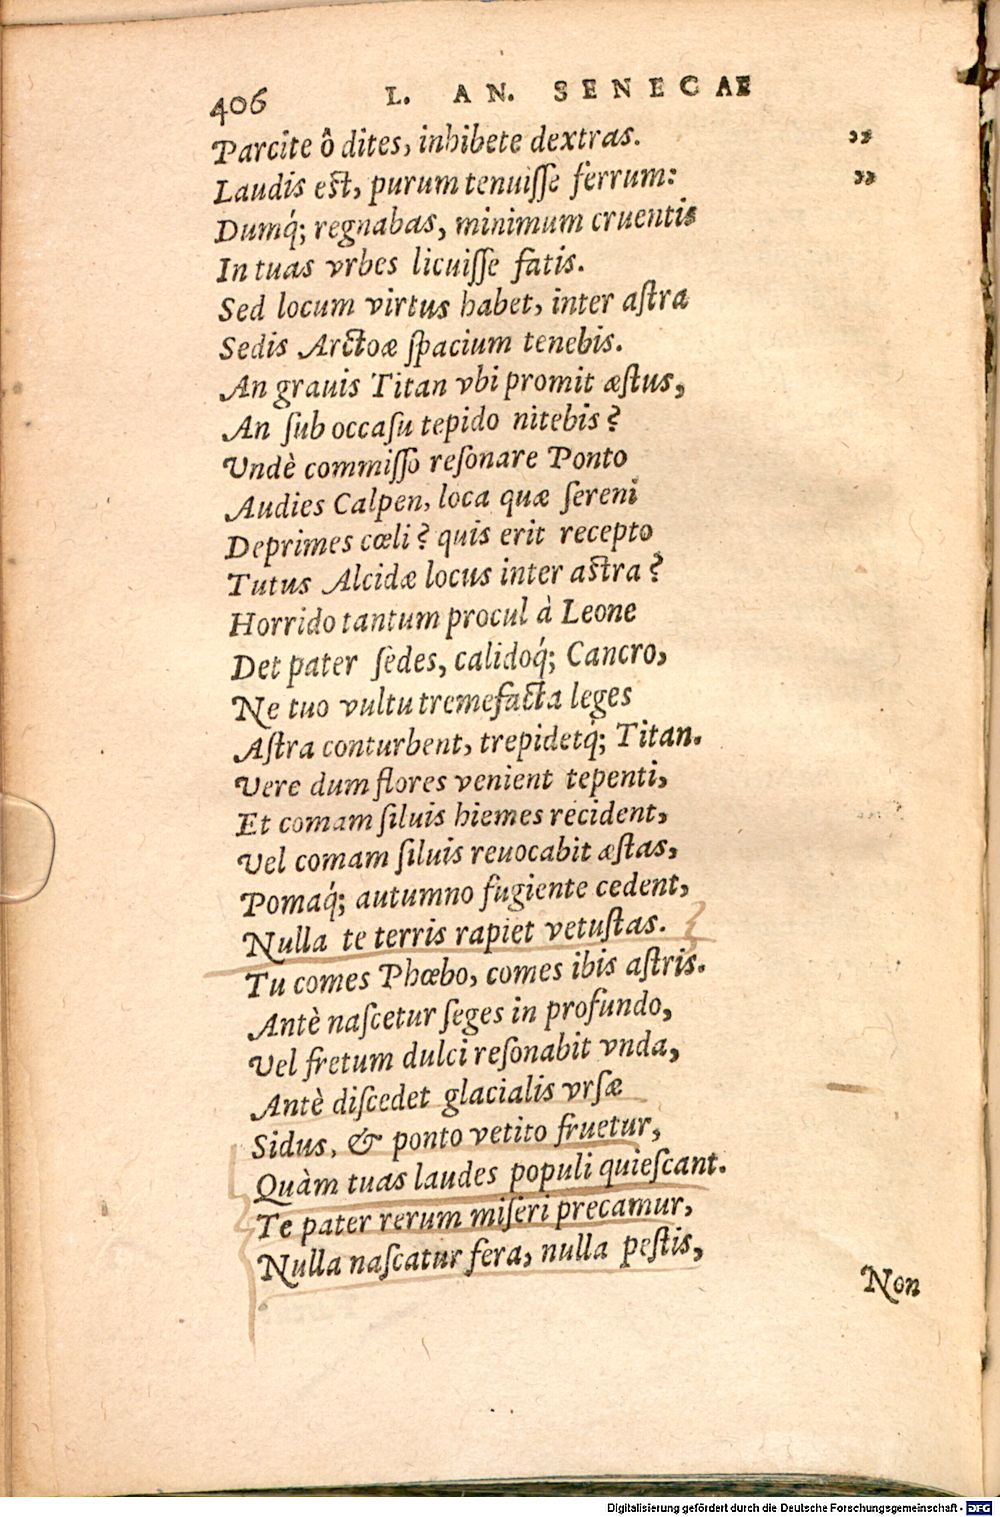 406 L. AN. SENECAE
Parcite ô dites, inhibete dextras. ”
Laudis est, purum tenuiſſe ferrum: ”
Dumq́; regnabas, minimum cruentis
In tuas vrbes licuiſſe fatis.
Sed locum virtus habet, inter aſtra
Sedis Arctoæ ſpacium tenebis.
An grauis Titan vbi promit æſtus,
An ſub occaſu tepido nitebis?
Vndè commiſſo reſonare Ponto
Audies Calpen, loca quæ ſereni
Deprimes cœli? quis erit recepto
Tutus Alcidæ locus inter astra?
Horrido tantum procul à Leone
Det pater ſedes, calidoq́; Cancro,
Ne tuo vultu tremefacta leges
Aſtra conturbent, trepidetq́; Titan.
Vere dum flores venient tepenti,
Et comam ſiluis hiemes recident,
Vel comam ſiluis reuocabit æſtas,
Pomaq́; autumno fugiente cedent,
Nulla te terris rapiet vetuſtas.
Tu comes Phœbo, comes ibis aſtris.
Antè naſcetur ſeges in profundo,
Vel fretum dulci reſonabit vnda,
Antè diſcedet glacialis vrſæ
Sidus, & ponto vetito fruetur,
Quàm tuas laudes populi quieſcant.
Te pater rerum miſeri precamur,
Nulla naſcatur fera, nulla peſtis,
Non
Digitalisierung gefördert durch die Deutsche Forschungsgemeinschaft - DFG